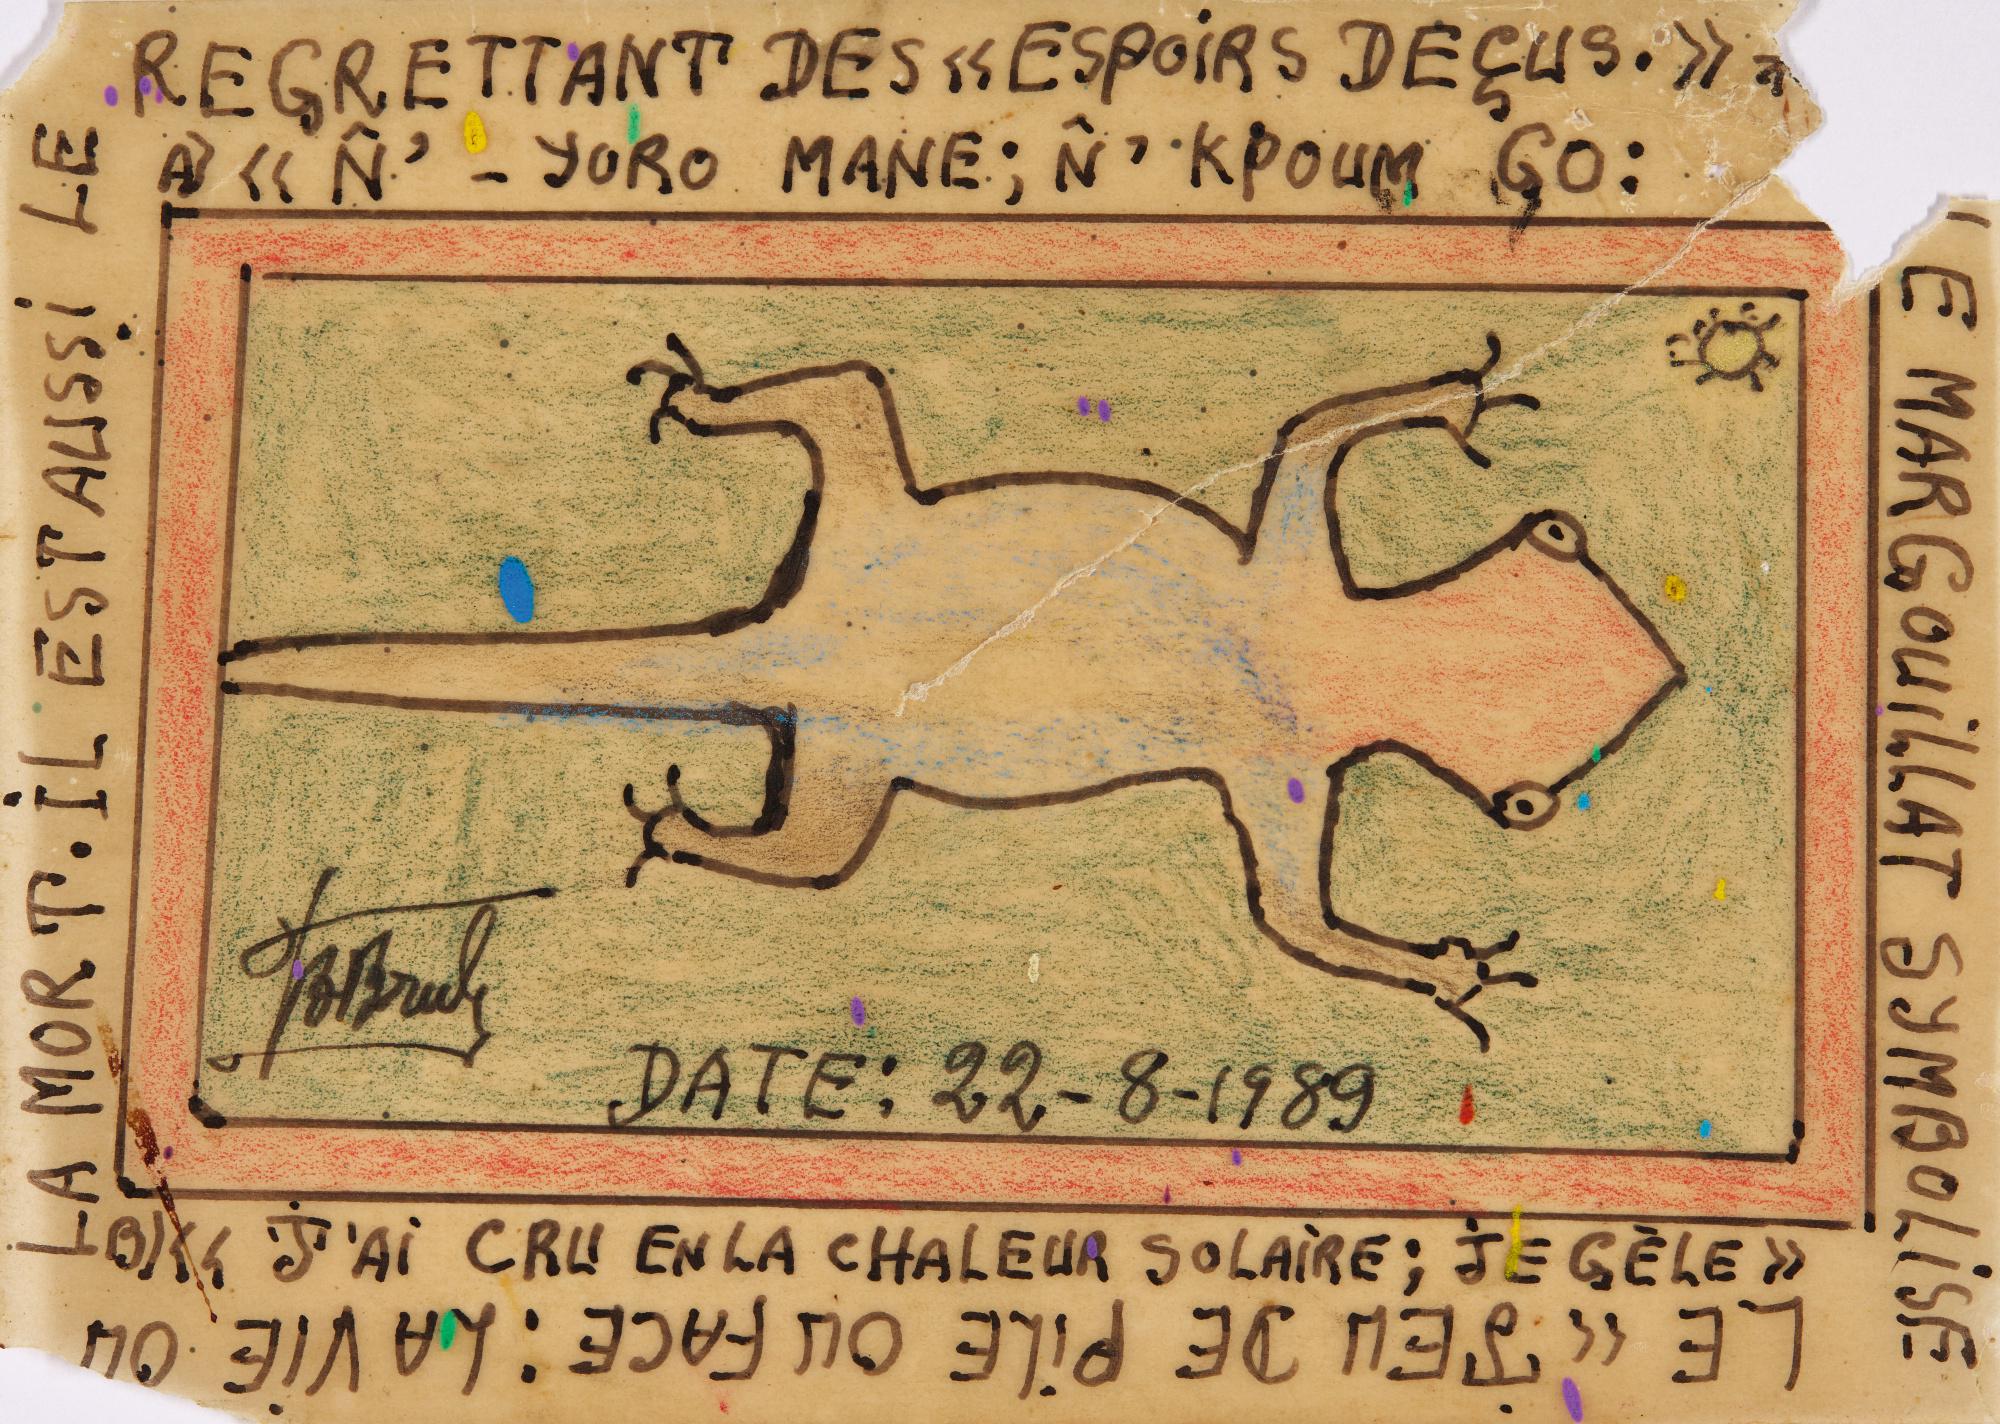 LE MARGOUILLAT SYMBOLISE
LE « JEU DE PILE OU FACE : LA VIE OU
LA MORT. IL EST AUSSI LE
REGRETTANT DES «ESPOIRS DEÇUS.»
A) « N̂' - YORO MANE; N̂' KPOUM GO:
B) « J'AI CRU EN LA CHALEUR SOLAIRE; JE GÈLE »
DATE: 22-8-1989